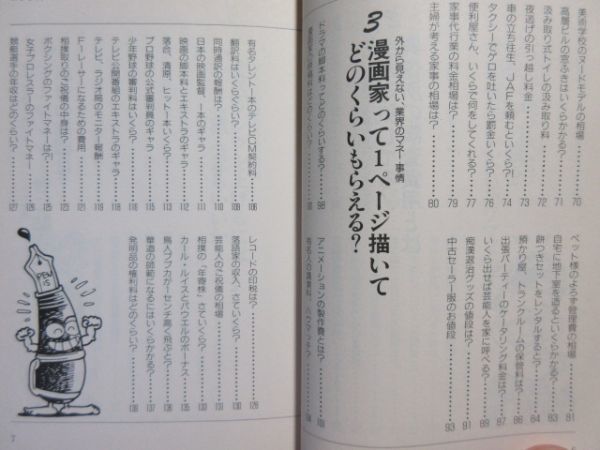 美術学校のヌードモデルの相場 70
高層ビルの窓ふきはいくらかかる? 71
汲み取り式トイレの汲み取り料 72
夜逃げの引っ越し料金 73
車の立ち往生、JAFを頼むといくら?! 74
タクシーでゲロを吐いたら罰金いくら? 76
便利屋さん、いくらで何をしてくれる? 77
家事代行業の料金相場は? 79
主婦が考える家事の相場は? 80
ペット様のようず管理費の相場 81
自宅に地下室を造るといくらかかる? 83
餅つきセットをレンタルすると? 84
預かり屋、トランクルームの保管料は? 86
出張パーティーのケータリング料金は? 87
いくら出せば芸能人を家に呼べる? 88
痴漢退治グッズの値段は? 91
中古セーラー服のお値段 93
外から見えない、業界のマネー事情
3 漫画家って1ページ描いて
どのくらいもらえる?
ドラマの脚本料ってどのくらいする? 98
アニメーションの製作費とは?
有名タレント1本のテレビCM契約料 106
翻訳料はいくらぐらい? 108
同時通訳の報酬は? 110
日本の映画監督、1本のギャラ 111
映画の脚本料とエキストラのギャラ
落合、清原、ヒット1本いくら? 113
プロ野球の公式審判員のギャラ 115
少年野球の審判料はいくら? 116
テレビ公開番組のエキストラのギャラ 118
テレビ、ラジオ局のモニター報酬 119
F1レーサーになるための費用 121
相撲取りのご祝儀の中身は? 123
ボクシングのファイトマネーは?!
女子プロレスラーのファイトマネー
競艇選手の年収はどのくらい? 127
レコードの印税は? 128
落語家の収入、さていくら? 130
芸能人のご祝儀の相場 131
相撲の〝年寄株〟さていくら?
カール・ルイスとパウエルのボーナス 135
鳥人ブブカが1センチ高く飛ぶと?
華道の師範になるにはいくらかかる? 136
発明品の権利料はどのくらい?
PEN IS
7